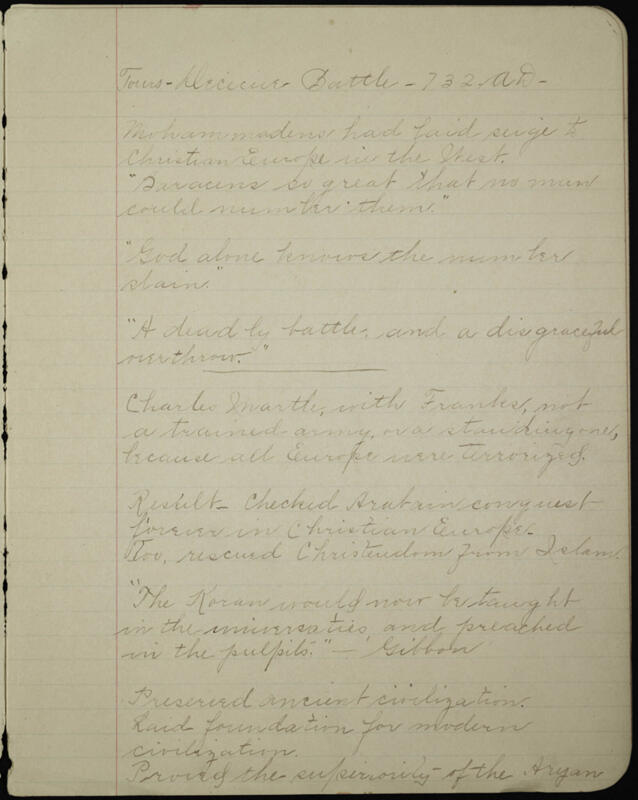 Tours - Decicive Battle - 732 AD -
Mohammadens had laid seige to
Christian Europe in the West.
"Saracens so great that no man
could number them."
"God alone knows the number
slain."
"A deadly battle, and a disgraceful
overthrow."
Charles Martle, with Franks, not
a trained army, or a standing one,
because all Europe were terrorized.
Result - Checked Arabian conquest
forever in Christian Europe -
Too, rescued Christendom from Islam.
"The Koran would now be taught
in the universaties and preached
in the pulpits." - Gibbon
Preserved ancient civilization.
Laid foundation for modern
civilization.
Proved the superiority of the Aryan